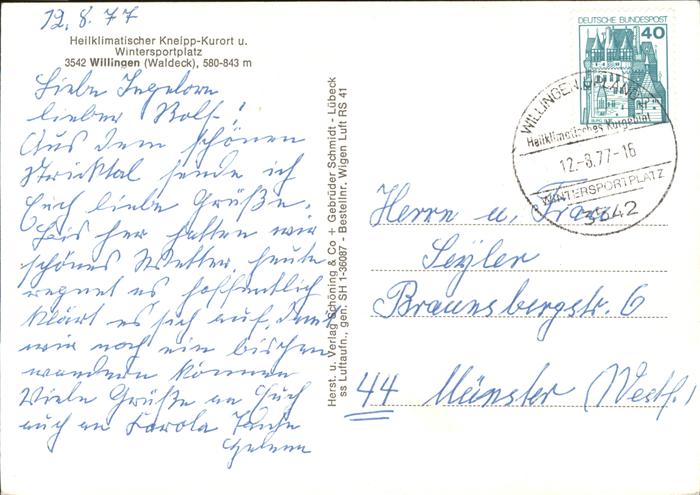 12.8.77
Heilklimatischer Kneipp-Kurort u.
Wintersportplatz
3542 Willingen (Waldeck), 580-843 m
Liebe Ingelore
lieber Rolf!
Aus dem schönen
Stricktal sende ich
Euch liebe Grüße.
Bis her hatten wir
schönes Wetter, heute
regnet es, hoffentlich
klärt es sich auf, damit
wir noch ein bischen
wandern können
Viele Grüße an Euch
auch an Karola Tante
Helene
Herst. u. Verlag Schöning & Co + Gebrüder Schmidt - Lübeck
ss Luftaufn., gen. SH 1-36087 - Bestellnr. Wigen Luft RS 41
DEUTSCHE BUNDESPOST
40
WILLINGEN, UPLAND
Heilklimatisches Kurgebiet
12.-8.77-16
WINTERSPORTPLATZ
3542
Herrn u. Frau
Seyler
Braunsbergstr. 6
44 Münster (Westf.)